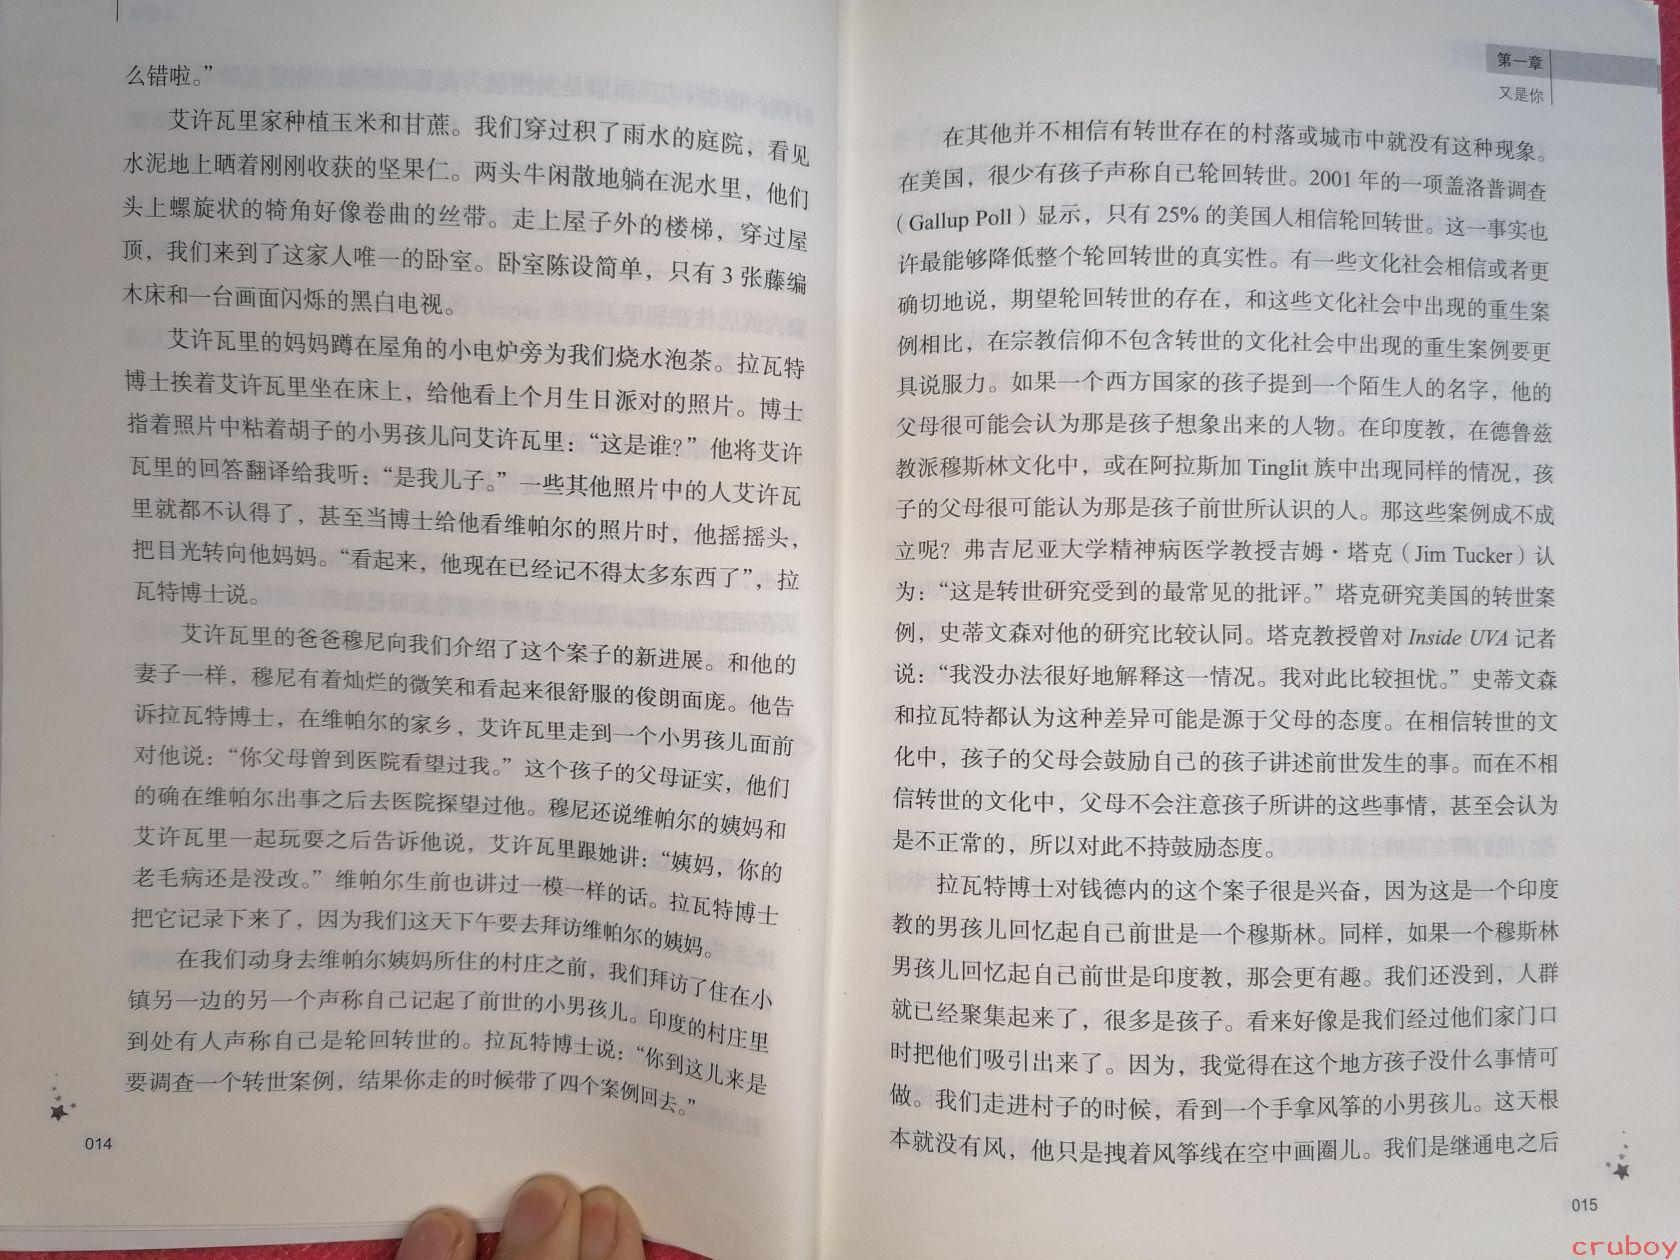 么错啦。”
艾许瓦里家种植玉米和甘蔗。我们穿过积了雨水的庭院，看见
水泥地上晒着刚刚收获的坚果仁。两头牛闲散地躺在泥水里，他们
头上螺旋状的犄角好像卷曲的丝带。走上屋子外的楼梯，穿过屋
顶，我们来到了这家人唯一的卧室。卧室陈设简单，只有 3 张藤编
木床和一台画面闪烁的黑白电视。
艾许瓦里的妈妈蹲在屋角的小电炉旁为我们烧水泡茶。拉瓦特
博士挨着艾许瓦里坐在床上，给他看上个月生日派对的照片。博士
指着照片中粘着胡子的小男孩儿问艾许瓦里：“这是谁？”他将艾许
瓦里的回答翻译给我听：“是我儿子。”一些其他照片中的人艾许瓦
里就都不认得了，甚至当博士给他看维帕尔的照片时，他摇摇头，
把目光转向他妈妈。“看起来，他现在已经记不得太多东西了”，拉
瓦特博士说。
艾许瓦里的爸爸穆尼向我们介绍了这个案子的新进展。和他的
妻子一样，穆尼有着灿烂的微笑和看起来很舒服的俊朗面庞。他告
诉拉瓦特博士，在维帕尔的家乡，艾许瓦里走到一个小男孩儿面前
对他说：“你父母曾到医院看望过我。”这个孩子的父母证实，他们
的确在维帕尔出事之后去医院探望过他。穆尼还说维帕尔的姨妈和
艾许瓦里一起玩耍之后告诉他说，艾许瓦里跟她讲：“姨妈，你的
老毛病还是没改。”维帕尔生前也讲过一模一样的话。拉瓦特博士
把它记录下来了，因为我们这天下午要去拜访维帕尔的姨妈。
在我们动身去维帕尔姨妈所住的村庄之前，我们拜访了住在小
镇另一边的另一个声称自己记起了前世的小男孩儿。印度的村庄里
到处有人声称自己是轮回转世的。拉瓦特博士说：“你到这儿来是
要调查一个转世案例，结果你走的时候带了四个案例回去。”
014
第一章
又是你
在其他并不相信有转世存在的村落或城市中就没有这种现象。
在美国，很少有孩子声称自己轮回转世。2001 年的一项盖洛普调查
（Gallup Poll）显示，只有 25% 的美国人相信轮回转世。这一事实也
许最能够降低整个轮回转世的真实性。有一些文化社会相信或者更
确切地说，期望轮回转世的存在，和这些文化社会中出现的重生案
例相比，在宗教信仰不包含转世的文化社会中出现的重生案例要更
具说服力。如果一个西方国家的孩子提到一个陌生人的名字，他的
父母很可能会认为那是孩子想象出来的人物。在印度教，在德鲁兹
教派穆斯林文化中，或在阿拉斯加 Tinglit 族中出现同样的情况，孩
子的父母很可能认为那是孩子前世所认识的人。那这些案例成不成
立呢？弗吉尼亚大学精神病医学教授吉姆·塔克（Jim Tucker）认
为：“这是转世研究受到的最常见的批评。”塔克研究美国的转世案
例，史蒂文森对他的研究比较认同。塔克教授曾对 Inside UVA 记者
说：“我没办法很好地解释这一情况。我对此比较担忧。”史蒂文森
和拉瓦特都认为这种差异可能是源于父母的态度。在相信转世的文
化中，孩子的父母会鼓励自己的孩子讲述前世发生的事。而在不相
信转世的文化中，父母不会注意孩子所讲的这些事情，甚至会认为
是不正常的，所以对此不持鼓励态度。
拉瓦特博士对钱德内的这个案子很是兴奋，因为这是一个印度
教的男孩儿回忆起自己前世是一个穆斯林。同样，如果一个穆斯林
男孩儿回忆起自己前世是印度教，那会更有趣。我们还没到，人群
就已经聚集起来了，很多是孩子。看来好像是我们经过他们家门口
时把他们吸引出来了。因为，我觉得在这个地方孩子没什么事情可
做。我们走进村子的时候，看到一个手拿风筝的小男孩儿。这天根
本就没有风，他只是拽着风筝线在空中画圈儿。我们是继通电之后
015
cruboy